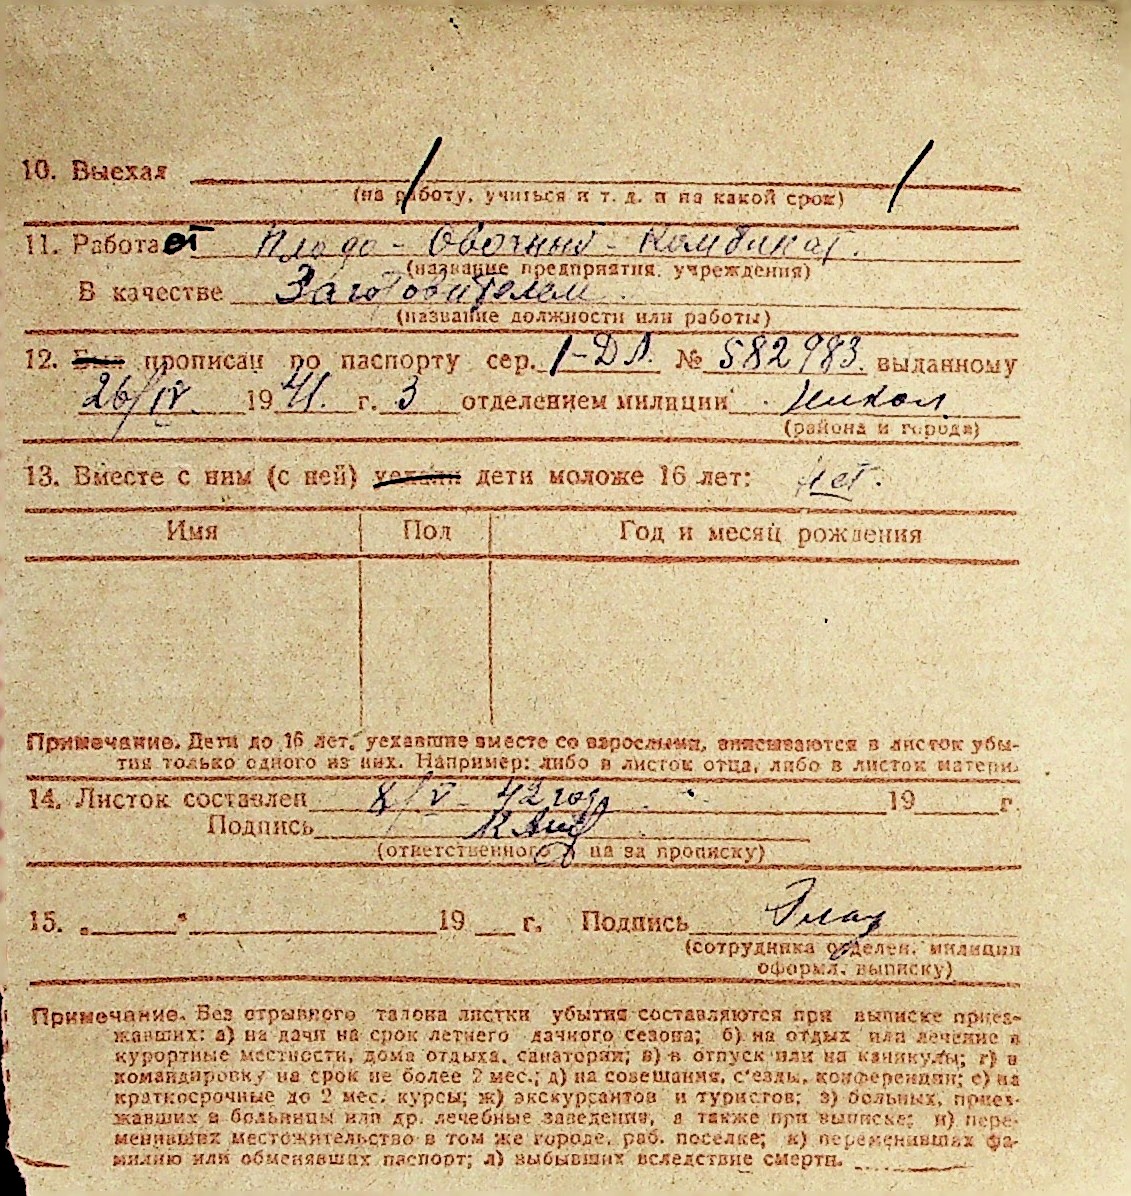 10. Выехал
(на работу, учиться и т. д. и на какой срок)
11. Работает Плодо-Овочный-Комбинат.
(название предприятия, учреждения)
В качестве Заготовителем
(название должности или работы)
12. Был прописан по паспорту сер. I-ДЛ. № 582983. выданному
26/IV. 1941. г. 3 отделением милиции Никол.
(района и города)
13. Вместе с ним (с ней) уехали дети моложе 16 лет: нет.
Имя Пол Год и месяц рождения
Примечание. Дети до 16 лет, уехавшие вместе со взрослыми, вписываются в листок убы-
тия только одного из них. Например: либо в листок отца, либо в листок матери.
14. Листок составлен 8/V-42 год 19 г.
Подпись
(ответственного на за прописку)
15. „ " 19 г. Подпись
(сотрудника отделен. милиции
оформл. выписку)
Примечание. Без отрывного талона листки убытия составляются при выписке приез-
жавших: а) на дачи на срок летнего дачного сезона; б) на отдых или лечение в
курортные местности, дома отдыха, санатории; в) в отпуск или на каникулы; г) в
командировку на срок не более 2 мес.; д) на совещания, с'езды, конференции; е) на
краткосрочные до 2 мес. курсы; ж) экскурсантов и туристов; з) больных, приез-
жавших в больницы или др. лечебные заведения, а также при выписке; и) пере-
менивших местожительство в том же городе, раб. поселке; к) переменивших фа-
милию или обменявших паспорт; л) выбывших вследствие смерти.